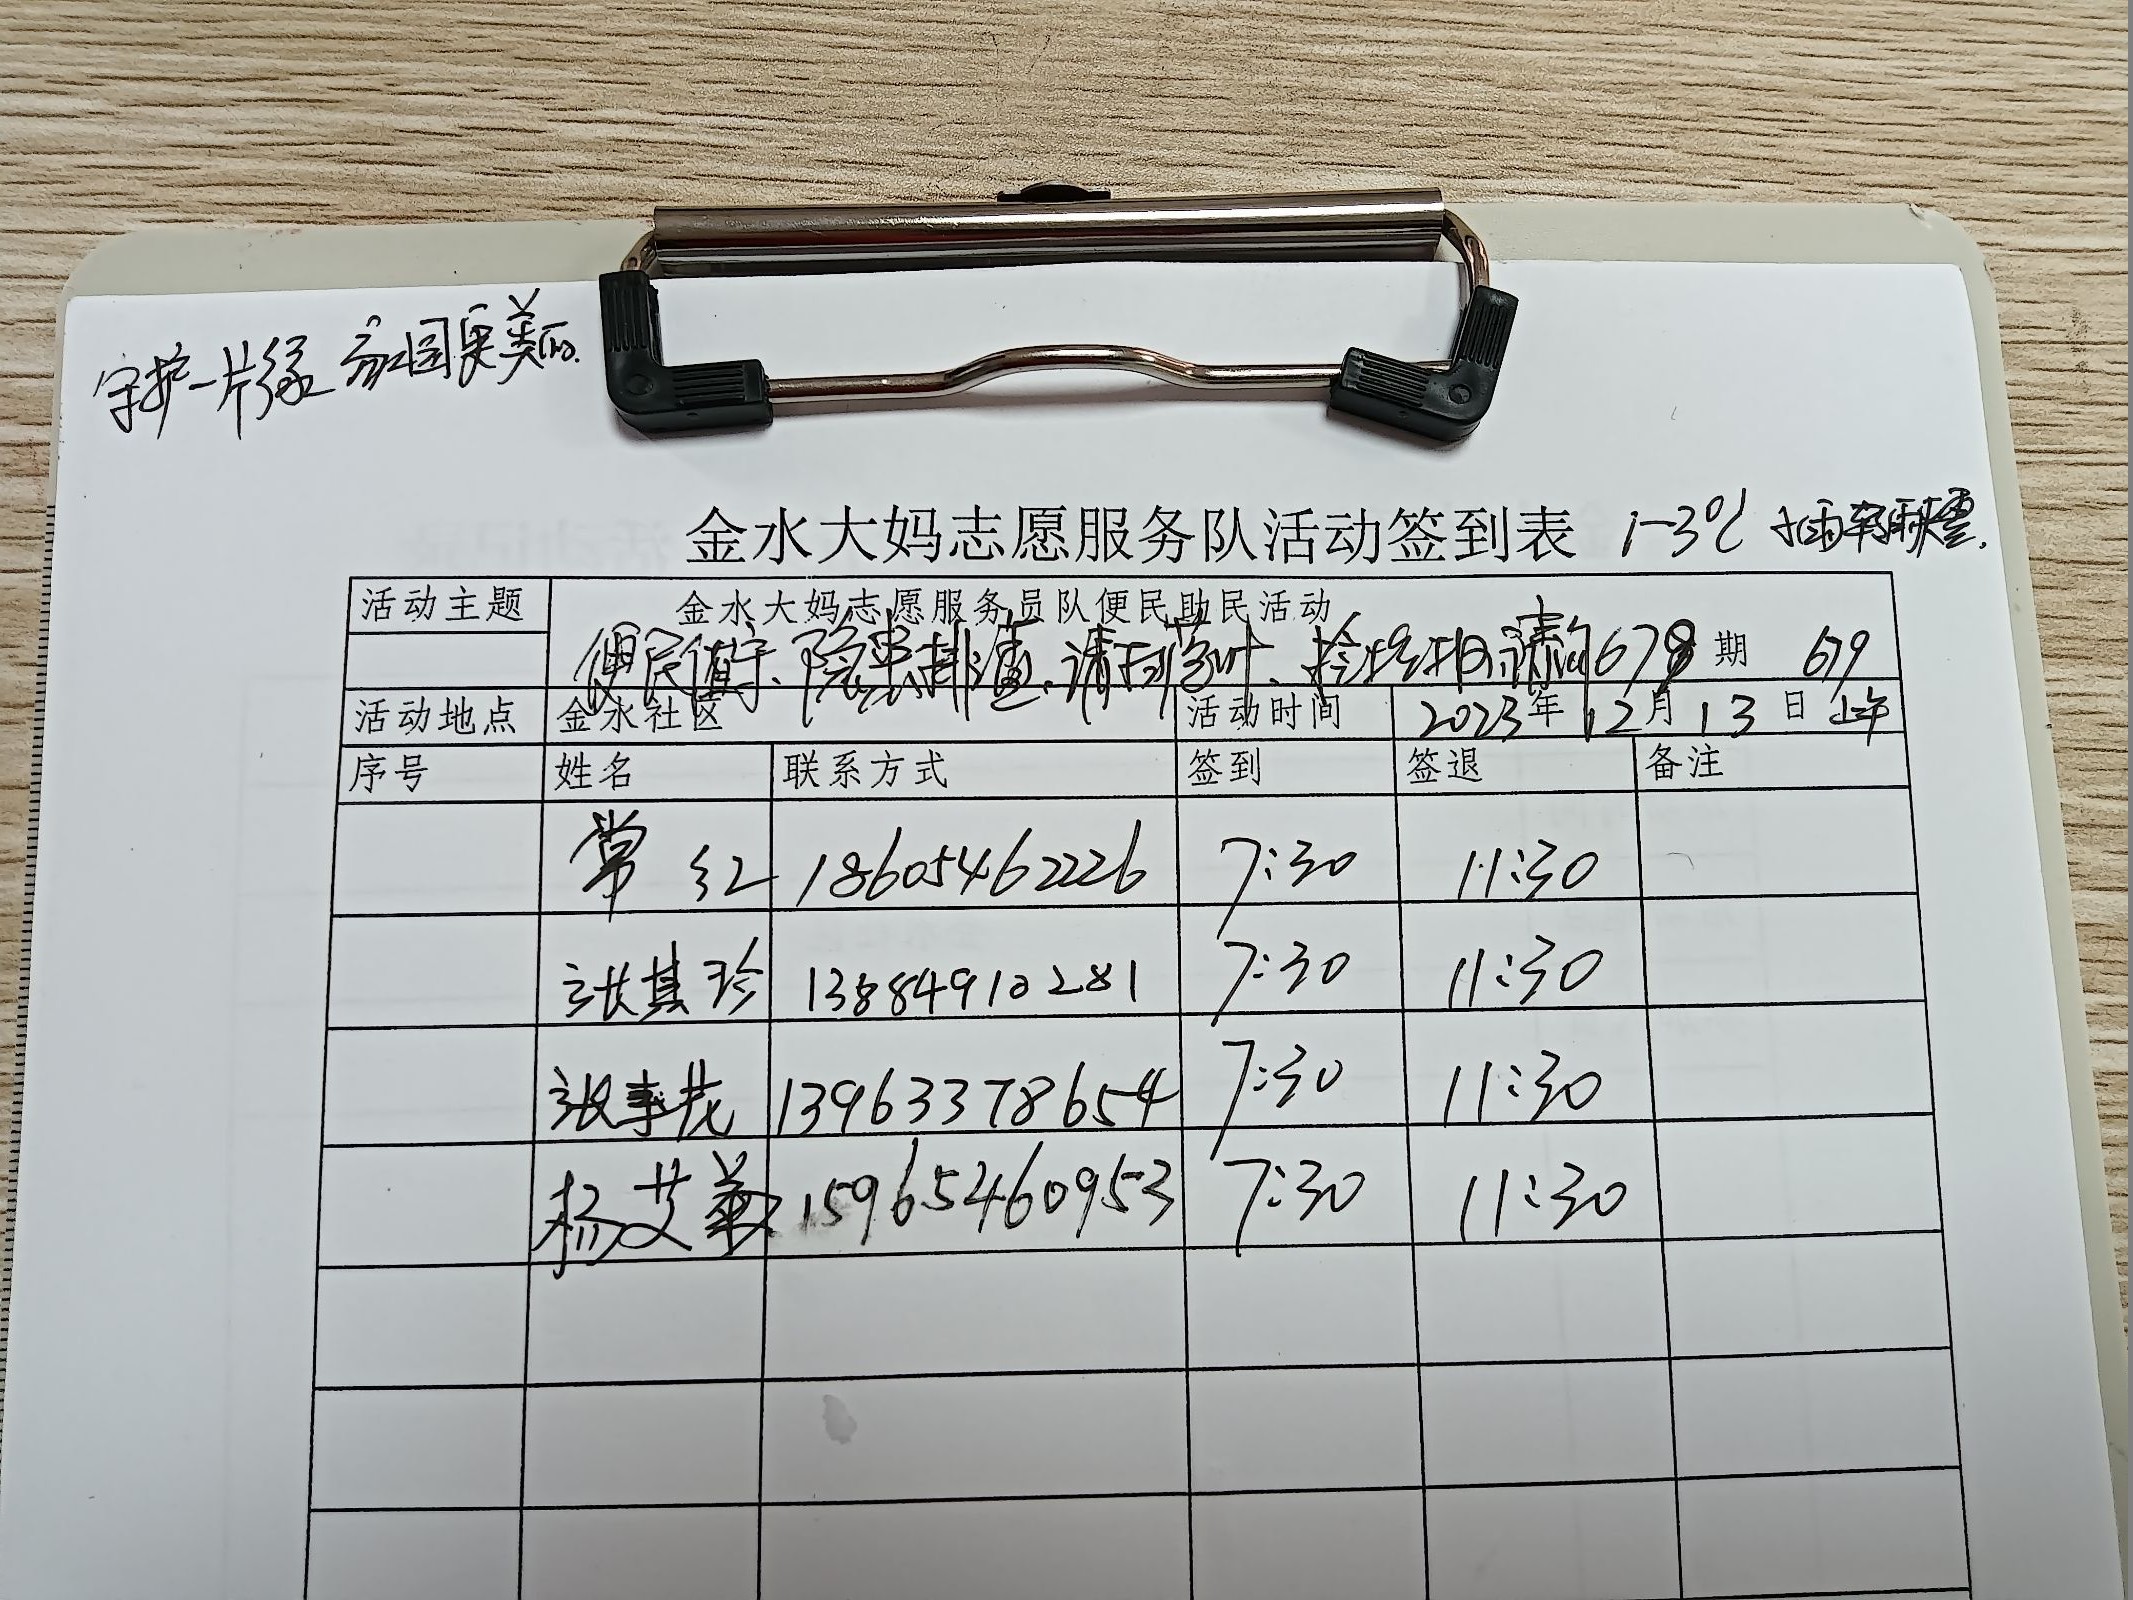 守护一片绿 家园更美丽.
金水大妈志愿服务队活动签到表 1-3℃
活动主题 金水大妈志愿服务员队便民助民活动
便民值守、隐患排查、清扫落叶、捡垃圾 678期 679
活动地点 金水社区 活动时间 2023年12月13日 上午
序号 姓名 联系方式 签到 签退 备注
常红 18605462226 7:30 11:30
张其珍 13884910281 7:30 11:30
13963378654 7:30 11:30
杨艾 15965460953 7:30 11:30